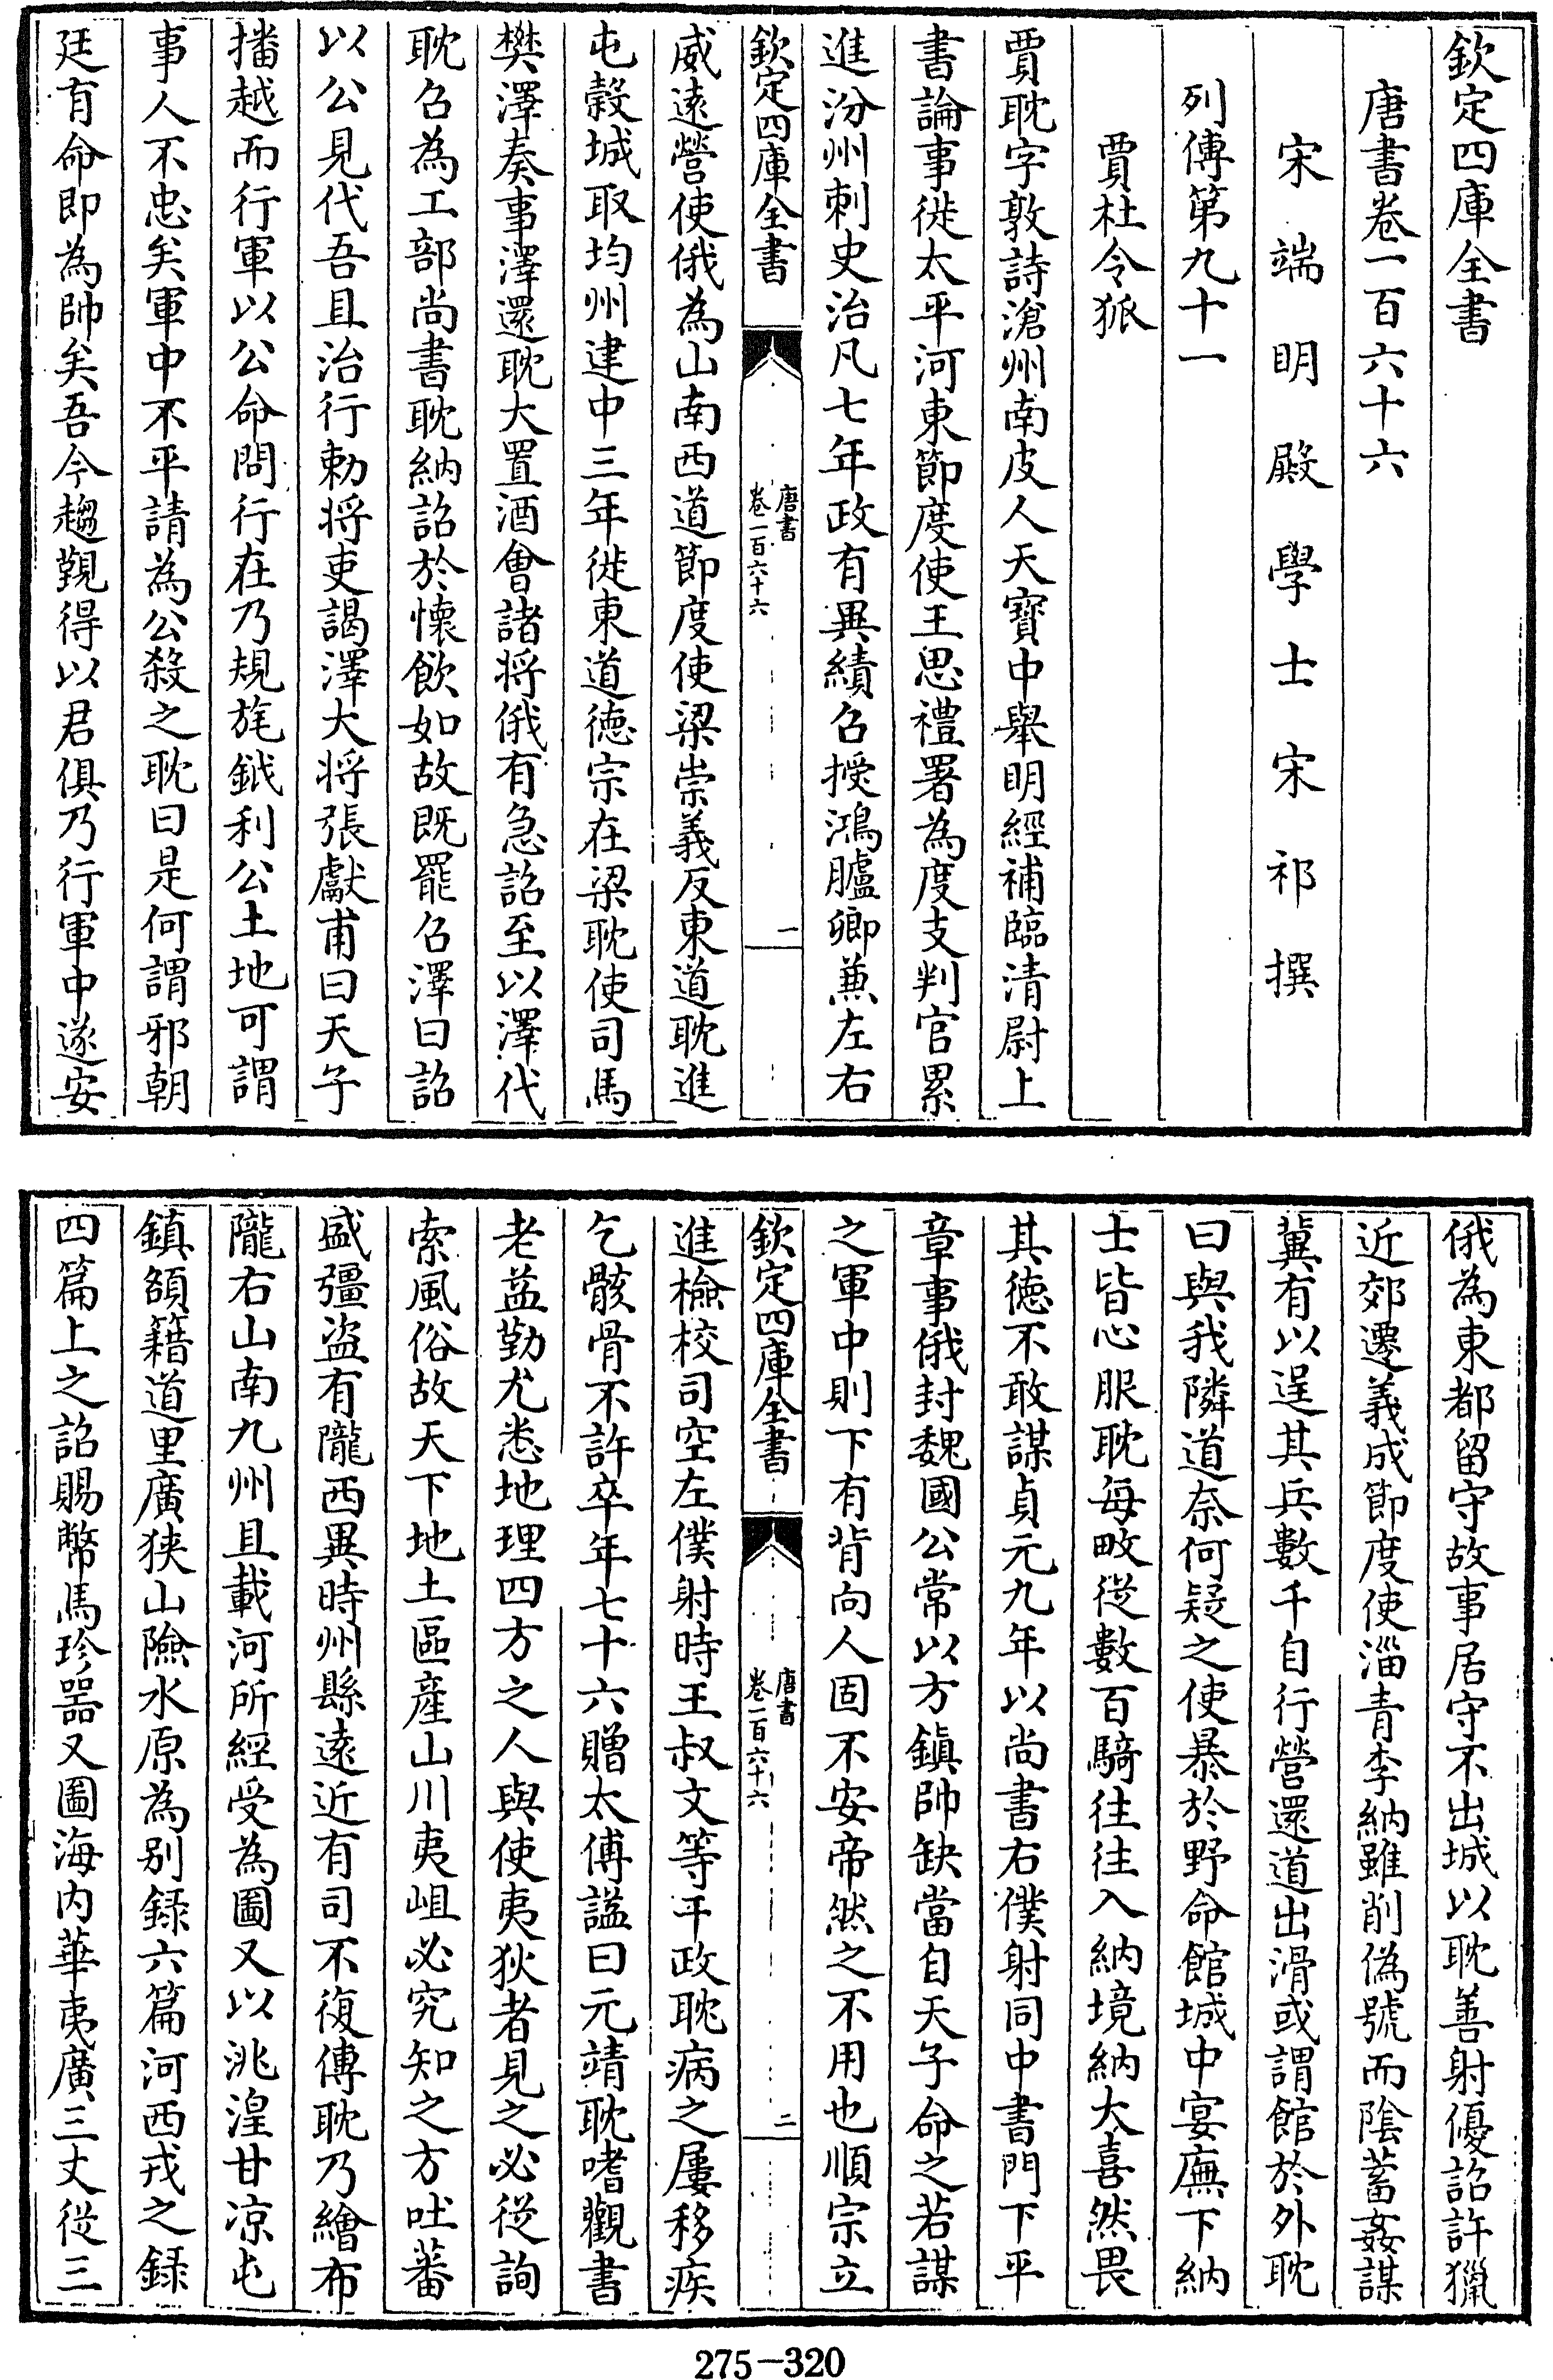 欽定四庫全書
唐書卷一百六十六
宋端明殿學士宋祁撰
列傳第九十一
賈杜令狐
賈耽字敦詩滄州南皮人天寶中舉明經補臨清尉上
書論事徙太平河東節度使王思禮署為度支判官累
進汾州刺史治凡七年政有異績召授鴻臚卿兼左右
欽定四庫全書
唐書
卷一百六十六
一
威遠營使俄為山南西道節度使梁崇義反東道耽進
屯穀城取均州建中三年徙東道德宗在梁耽使司馬
樊澤奏事澤還耽大置酒會諸將俄有急詔至以澤代
耽召為工部尚書耽納詔於懷飲如故既罷召澤曰詔
以公見代吾且治行勅將吏謁澤大將張獻甫曰天子
播越而行軍以公命問行在乃規旄鉞利公土地可謂
事人不忠矣軍中不平請為公殺之耽曰是何謂邪朝
廷有命即為帥矣吾今趨覲得以君俱乃行軍中遂安
俄為東都留守故事居守不出城以耽善射優詔許獵
近郊遷義成節度使淄青李納雖削偽號而陰蓄姦謀
冀有以逞其兵數千自行營還道出滑或謂館於外耽
曰與我隣道奈何疑之使暴於野命館城中宴廡下納
士皆心服耽每畋從數百騎往往入納境納大喜然畏
其德不敢謀貞元九年以尚書右僕射同中書門下平
章事俄封魏國公常以方鎮帥缺當自天子命之若謀
之軍中則下有背向人固不安帝然之不用也順宗立
欽定四庫全書
唐書
卷一百六十六
二
進檢校司空左僕射時王叔文等干政耽病之屢移疾
乞骸骨不許卒年七十六贈太傅謚曰元靖耽嗜觀書
老益勤尤悉地理四方之人與使夷狄者見之必從詢
索風俗故天下地土區產山川夷岨必究知之方吐蕃
盛彊盜有隴西異時州縣遠近有司不復傳耽乃繪布
隴右山南九州且載河所經受為圖又以洮湟甘凉屯
鎮頟籍道里廣狹山險水原為別錄六篇河西戎之錄
四篇上之詔賜幣馬珍器又圖海內華夷廣三丈從三
275-320